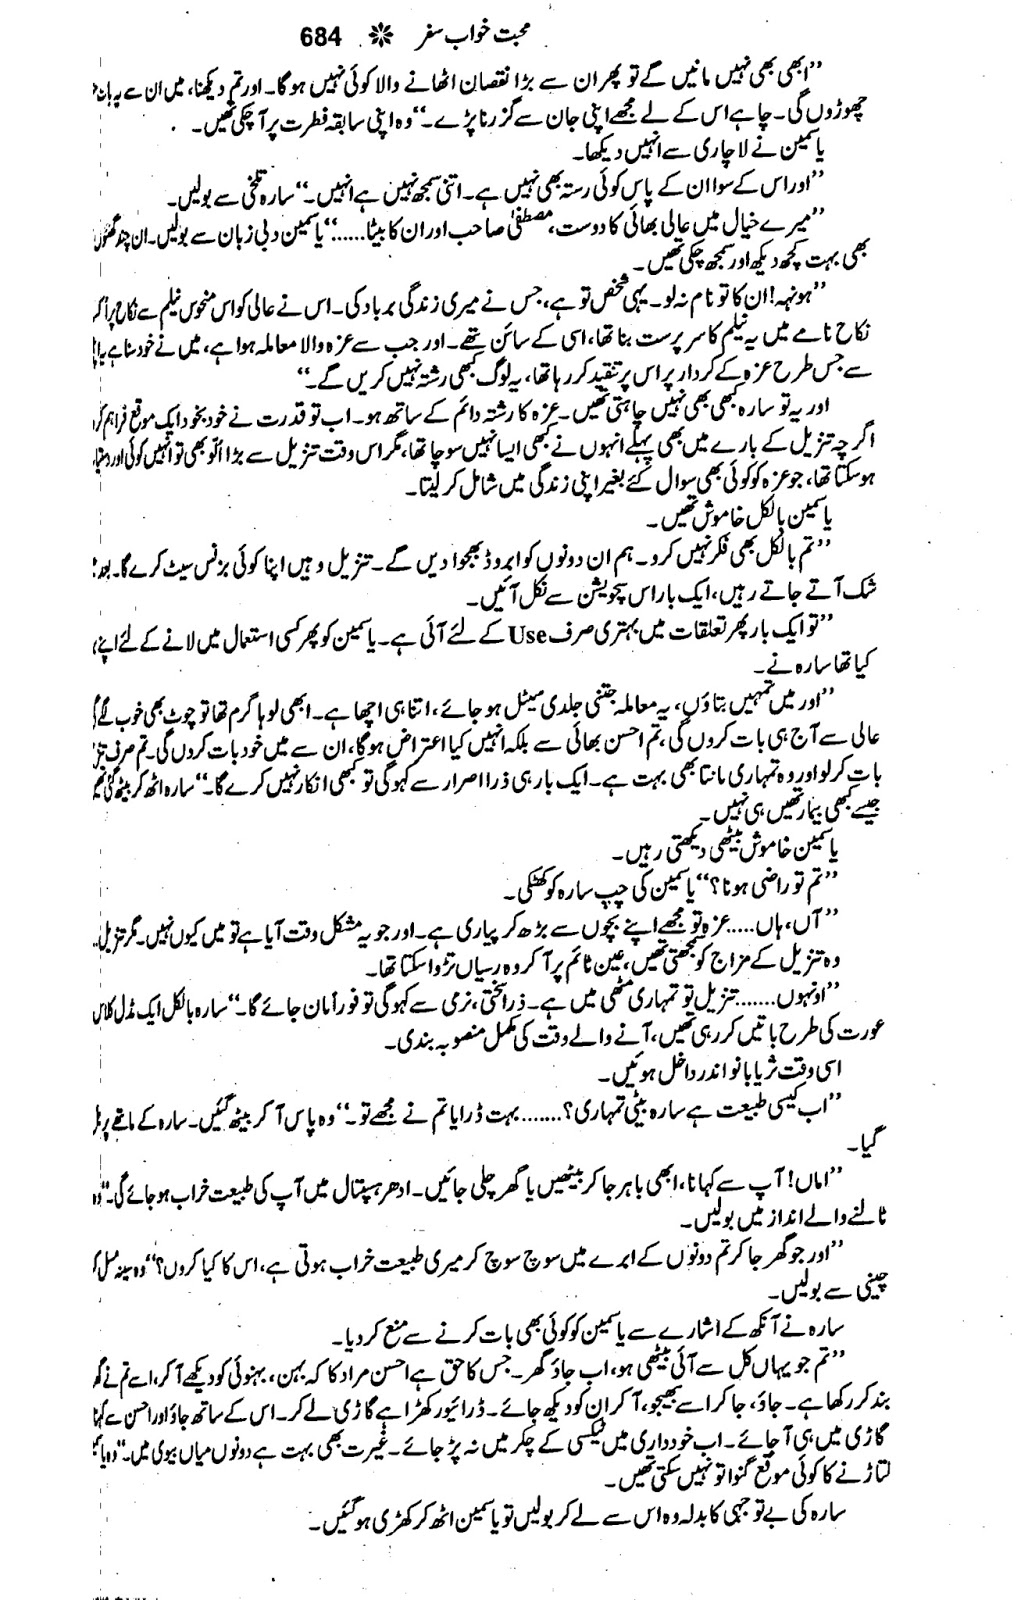 محبت خواب سفر ❋ 684
”ابھی بھی نہیں مانیں گے تو پھر ان سے بڑا نقصان اٹھانے والا کوئی نہیں ہوگا۔ اور تم دیکھنا، میں ان سے یہ بات
چھوڑوں گی۔ چاہے اس کے لے مجھے اپنی جان سے گزرنا پڑے۔“ وہ اپنی سابقہ فطرت پر آ چکی تھیں۔
یاسمین نے لاچاری سے انہیں دیکھا۔
”اور اس کے سوا ان کے پاس کوئی رستہ بھی نہیں ہے۔ اتنی سمجھ نہیں ہے انہیں۔“ سارہ تلخی سے بولیں۔
”میرے خیال میں عالی بھائی کا دوست، مصطفیٰ صاحب اور ان کا بیٹا......“ یاسمین دبی زبان سے بولیں۔ ان چند گھنٹوں
بھی بہت کچھ دیکھ اور سمجھ چکی تھیں۔
”ہونہہ! ان کا تو نام نہ لو۔ یہی شخص تو ہے، جس نے میری زندگی برباد کی۔ اس نے عالی کو اس منحوس نیلم سے نکاح پر
نکاح نامے میں یہ نیلم کا سرپرست بنا تھا، اسی کے سائن تھے۔ اور جب سے عزہ والا معاملہ ہوا ہے، میں نے خود سنا ہے
سے جس طرح عزہ کے کردار پر اس پر تنقید کر رہا تھا، یہ لوگ کبھی رشتہ نہیں کریں گے۔“
اور یہ تو سارہ کبھی بھی نہیں چاہتی تھیں۔ عزہ کا رشتہ دائم کے ساتھ ہو۔ اب تو قدرت نے خود بخود ایک موقع فراہم
اگرچہ تنزیل کے بارے میں بھی پہلے انہوں نے کبھی ایسا نہیں سوچا تھا، مگر اس وقت تنزیل سے بڑا الّو بھی تو انہیں کوئی اور
ہو سکتا تھا، جو عزہ کو کوئی بھی سوال کئے بغیر اپنی زندگی میں شامل کر لیتا۔
یاسمین بالکل خاموش تھیں۔
”تم بالکل بھی فکر نہیں کرو۔ ہم ان دونوں کو ابروڈ بھجوا دیں گے۔ تنزیل وہیں اپنا کوئی بزنس سیٹ کرے گا۔ بعد
شک آتے جاتے رہیں، ایک بار اس سچویشن سے نکل آئیں۔
”تو ایک بار پھر تعلقات میں بہتری صرف Use کے لئے آئی ہے۔ یاسمین کو پھر کسی استعمال میں لانے کے لئے اپنے
کیا تھا سارہ نے۔
”اور میں تمہیں بتاؤں، یہ معاملہ جتنی جلدی سیٹل ہو جائے، اتنا ہی اچھا ہے۔ ابھی لوہا گرم تھا تو چوٹ بھی خوب
عالی سے آج ہی بات کروں گی، تم احسن بھائی سے بلکہ انہیں کیا اعتراض ہوگا، ان سے میں خود بات کروں گی۔ تم صرف
بات کر لو اور وہ تمہاری مانتا بھی بہت ہے۔ ایک بار ہی ذرا اصرار سے کہو گی تو کبھی انکار نہیں کرے گا۔“ سارہ اٹھ کر بیٹھ گئی
جیسے کبھی بیمار تھیں ہی نہیں۔
یاسمین خاموش بیٹھی دیکھتی رہیں۔
”تم تو راضی ہو نا؟“ یاسمین کی چپ سارہ کو کھٹکی۔
”آں، ہاں..... عزہ تو مجھے اپنے بچوں سے بڑھ کر پیاری ہے۔ اور جو یہ مشکل وقت آیا ہے تو میں کیوں نہیں۔ مگر تنزیل
وہ تنزیل کے مزاج کو سمجھتی تھیں، عین ٹائم پر آ کر وہ رسیاں تڑوا سکتا تھا۔
”اونہوں....... تنزیل تو تمہاری مٹھی میں ہے۔ ذرا سختی، نرمی سے کہو گی تو فوراً مان جائے گا۔“ سارہ بالکل ایک مڈل کلاس
عورت کی طرح باتیں کر رہی تھیں، آنے والے وقت کی مکمل منصوبہ بندی۔
اسی وقت ثریا بانو اندر داخل ہوئیں۔
”اب کیسی طبیعت ہے سارہ بیٹی تمہاری؟....... بہت ڈرایا تم نے مجھے تو۔“ وہ پاس آ کر بیٹھ گئیں۔ سارہ کے ماتھے پر بل
گیا۔
”اماں! آپ سے کہا نا، ابھی باہر جا کر بیٹھیں یا گھر چلی جائیں۔ ادھر ہسپتال میں آپ کی طبیعت خراب ہو جائے گی۔“ وہ
ٹالنے والے انداز میں بولیں۔
”اور جو گھر جا کر تم دونوں کے ابرے میں سوچ سوچ کر میری طبیعت خراب ہوتی ہے، اس کا کیا کروں؟“ وہ سینہ مسل
چینی سے بولیں۔
سارہ نے آنکھ کے اشارے سے یاسمین کو کوئی بھی بات کرنے سے منع کر دیا۔
”تم جو یہاں کل سے آئی بیٹھی ہو، اب جاؤ گھر۔ جس کا حق ہے احسن مراد کا کہ بہن، بہنوئی کو دیکھے آ کر، اسے تم نے
بند کر رکھا ہے۔ جاؤ، جا کر اسے بھیجو، آ کر ان کو دیکھ جائے۔ ڈرائیور کھڑا ہے گاڑی لے کر۔ اس کے ساتھ جاؤ اور احسن سے کہنا
گاڑی میں ہی آ جائے۔ اب خودداری میں ٹیکسی کے چکر میں نہ پڑ جائے۔ غیرت بھی بہت ہے دونوں میاں بیوی میں۔“ وہ
لتاڑنے کا کوئی موقع گنوا تو نہیں سکتی تھیں۔
سارہ کی بے توجہی کا بدلہ وہ اس سے لے کر بولیں تو یاسمین اٹھ کر کھڑی ہو گئیں۔